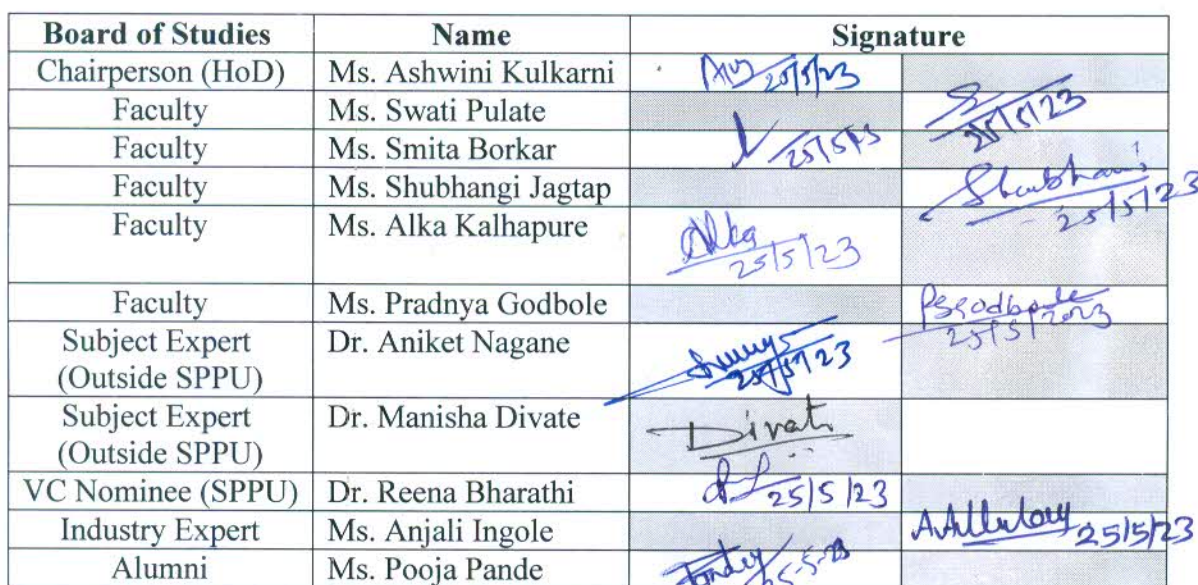 Board of Studies Name Signature
Chairperson (HoD) Ms. Ashwini Kulkarni 25/5/23
Faculty Ms. Swati Pulate 25/5/23
Faculty Ms. Smita Borkar 25/5/23
Faculty Ms. Shubhangi Jagtap Shubhangi 25/5/23
Faculty Ms. Alka Kalhapure Alka 25/5/23
Faculty Ms. Pradnya Godbole PSGodbole 25/5/2023
Subject Expert Dr. Aniket Nagane 25/5/23
(Outside SPPU)
Subject Expert Dr. Manisha Divate Divate
(Outside SPPU)
VC Nominee (SPPU) Dr. Reena Bharathi 25/5/23
Industry Expert Ms. Anjali Ingole 25/5/23
Alumni Ms. Pooja Pande 25-5-23